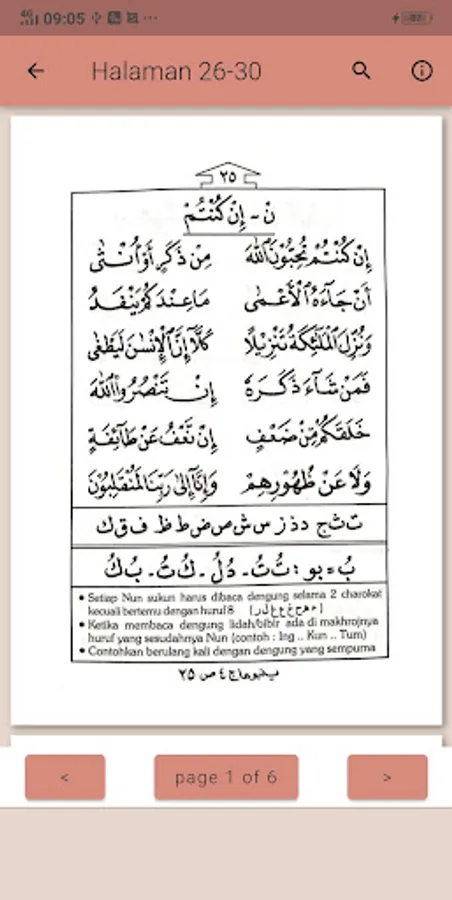 4G 09:05
Halaman 26-30
٢٥
نْ - إِنْ كُنْتُمْ
إِنْ كُنْتُمْ تُحِبُّوْنَ اللهَ مِنْ ذَكَرٍ أَوْ أُنْثٰى
أَنْ جَآءَهُ الْأَعْمٰى مَا عِنْدَكُمْ يَنْفَدُ
وَنُزِّلَ الْمَلٰٓئِكَةُ تَنْزِيْلًا كَلَّآ إِنَّ الْإِنْسٰنَ لَيَطْغٰى
فَمَنْ شَآءَ ذَكَرَهُ إِنْ تَنْصُرُوا اللهَ
خَلَقَكُمْ مِّنْ ضَعْفٍ إِنْ نَعْفُ عَنْ طَآئِفَةٍ
وَلَا عَنْ ظُهُوْرِهِمْ وَإِنَّآ إِلٰى رَبِّنَا لَمُنْقَلِبُوْنَ
ت ث ج د ذ ز س ش ص ض ط ظ ف ق ك
بُ = بو : تُ تُ - دُ لُ - كُ تُ - بُ كُ
• Setiap Nun sukun harus dibaca dengung selama 2 charokat
kecuali bertemu dengan huruf 8
• Ketika membaca dengung lidah/bibir ada di makhrojnya
huruf yang sesudahnya Nun (contoh : Ing .. Kun .. Tum)
• Contohkan berulang kali dengan dengung yang sempurna
٤ ص ٢٥
< page 1 of 6 >